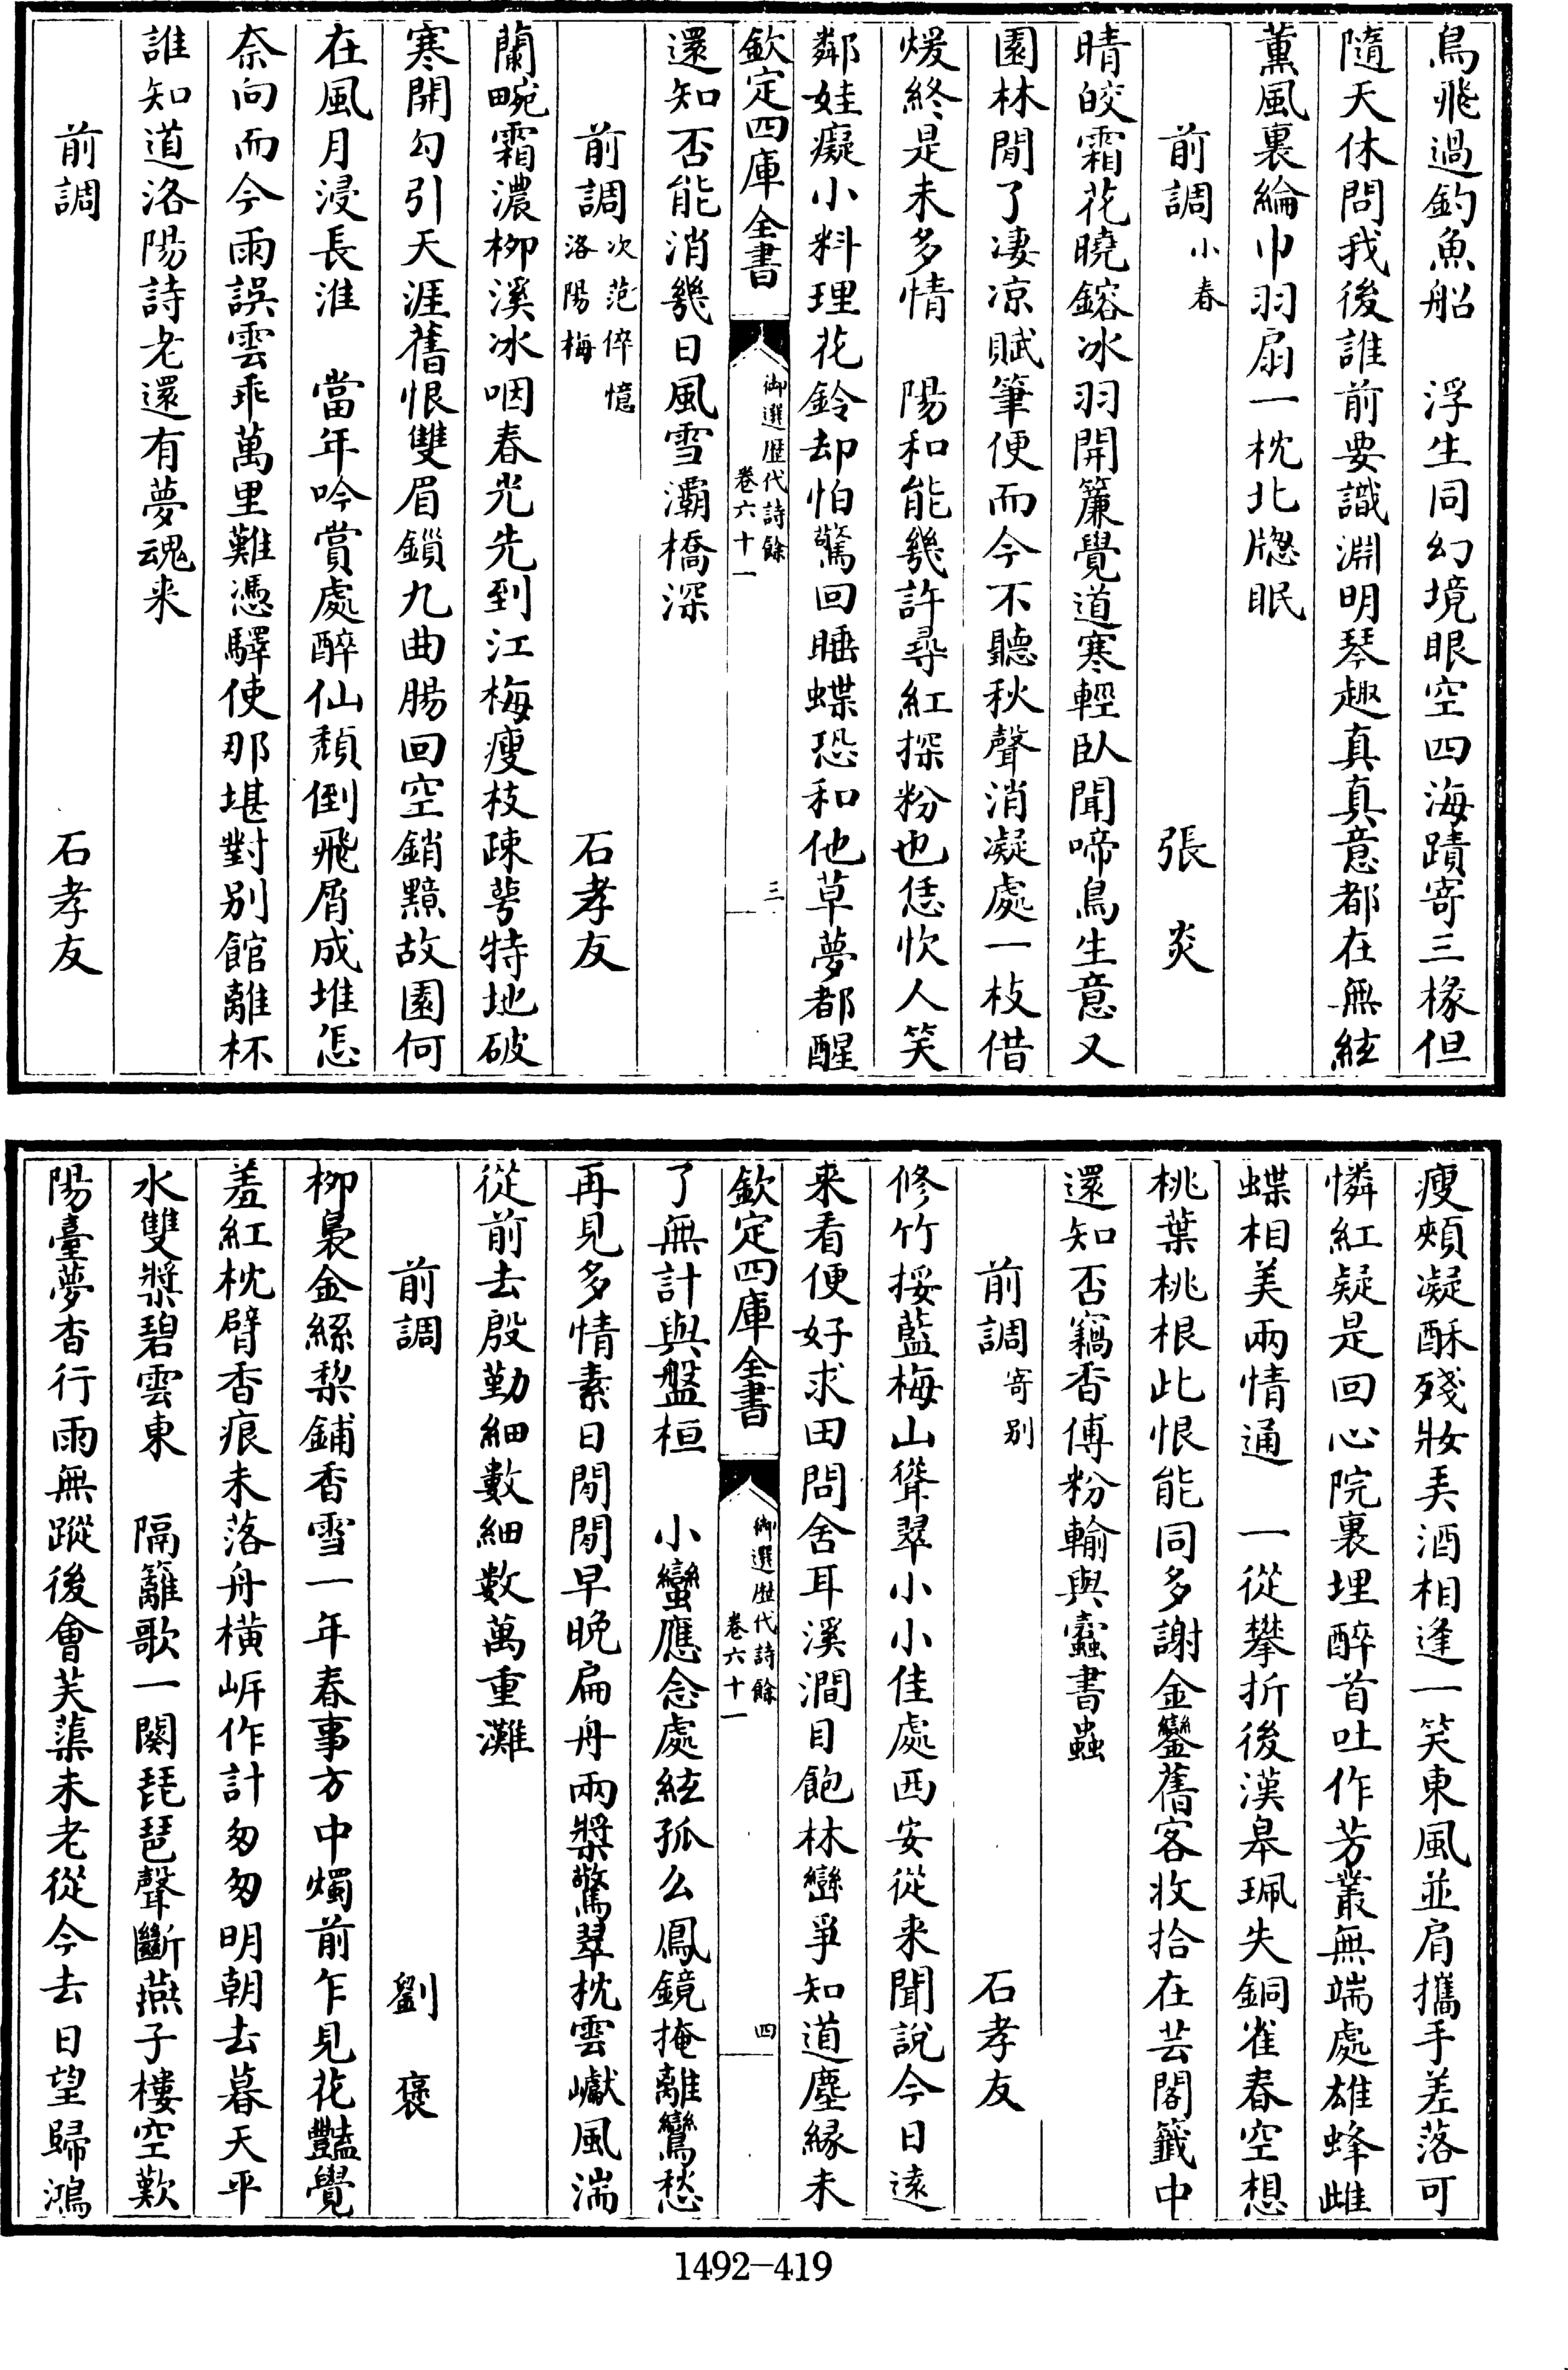 鳥飛過釣魚船　浮生同幻境眼空四海蹟寄三椽但
隨天休問我後誰前要識淵明琴趣真真意都在無絃
薰風裏綸巾羽扇一枕北牕眠
前調小春　張炎
晴皎霜花曉鎔冰羽開簾覺道寒輕臥聞啼鳥生意又
園林閒了淒凉賦筆便而今不聽秋聲消凝處一枝借
煖終是未多情　陽和能幾許尋紅探粉也恁忺人笑
鄰娃癡小料理花鈴却怕驚回睡蝶恐和他草夢都醒
欽定四庫全書　御選歴代詩餘卷六十一　三
還知否能消幾日風雪灞橋深
前調次范倅憶洛陽梅　石孝友
蘭畹霜濃柳溪冰咽春光先到江梅瘦枝疎萼特地破
寒開勾引天涯舊恨雙眉鎖九曲腸回空銷黯故園何
在風月浸長淮　當年吟賞處醉仙頹倒飛屑成堆怎
奈向而今雨誤雲乖萬里難憑驛使那堪對别館離杯
誰知道洛陽詩老還有夢魂来
前調　石孝友
瘦頰凝酥殘妝美酒相逢一笑東風並肩攜手差落可
憐紅疑是回心院裏埋醉首吐作芳叢無端處雄蜂雌
蝶相美兩情通　一從攀折後漢皋珮失銅雀春空想
桃葉桃根此恨能同多謝金鑾舊客收拾在芸閣籤中
還知否竊香傅粉輸與蠧書蟲
前調寄别　石孝友
修竹挼藍梅山聳翠小小佳處西安從来聞說今日遠
来看便好求田問舍耳溪澗目飽林巒爭知道塵緣未
欽定四庫全書　御選歴代詩餘卷六十一　四
了無計與盤桓　小蠻應念處絃孤么鳳鏡掩離鸞愁
再見多情素日閒閒早晚扁舟兩槳驚翠枕雲巘風湍
從前去殷勤細數細数萬重灘
前調　劉褒
柳裊金絲梨鋪香雪一年春事方中燭前乍見花豔覺
羞紅枕臂香痕未落舟横㟁作計匆匆明朝去暮天平
水雙槳碧雲東　隔籬歌一闋琵琶聲斷燕子樓空歎
陽臺夢杳行雨無蹤後會芙蕖未老從今去日望歸鴻
1492-419